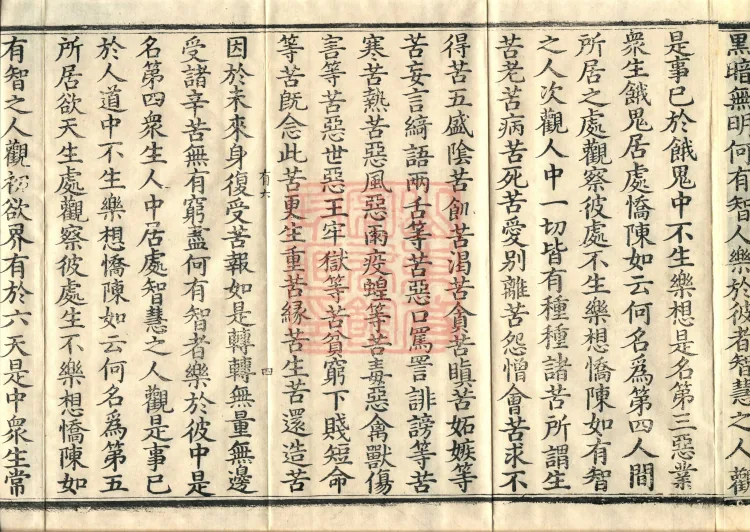 黑暗無明何有智人樂於彼者智慧之人觀
是事已於餓鬼中不生樂想是名第三惡業
衆生餓鬼居處憍陳如云何名爲第四人間
所居之處觀察彼處不生樂想憍陳如有智
之人次觀人中一切皆有種種諸苦所謂生
苦老苦病苦死苦愛别離苦怨憎會苦求不
得苦五盛陰苦飢苦渴苦貪苦瞋苦妬嫉等
苦妄言綺語兩舌等苦惡口罵詈誹謗等苦
寒苦熱苦惡風惡雨疫蝗等苦毒惡禽獸傷
害等苦惡世惡王牢獄等苦貧窮下賤短命
等苦旣念此苦更生重苦緣苦生苦還造苦
因於未來身復受苦報如是轉轉無量無邊
有六
四
受諸辛苦無有窮盡何有智者樂於彼中是
名第四衆生人中居處智慧之人觀是事已
於人道中不生樂想憍陳如云何名爲第五
所居欲天生處觀察彼處生不樂想憍陳如
有智之人觀初欲界有於六天是中衆生常